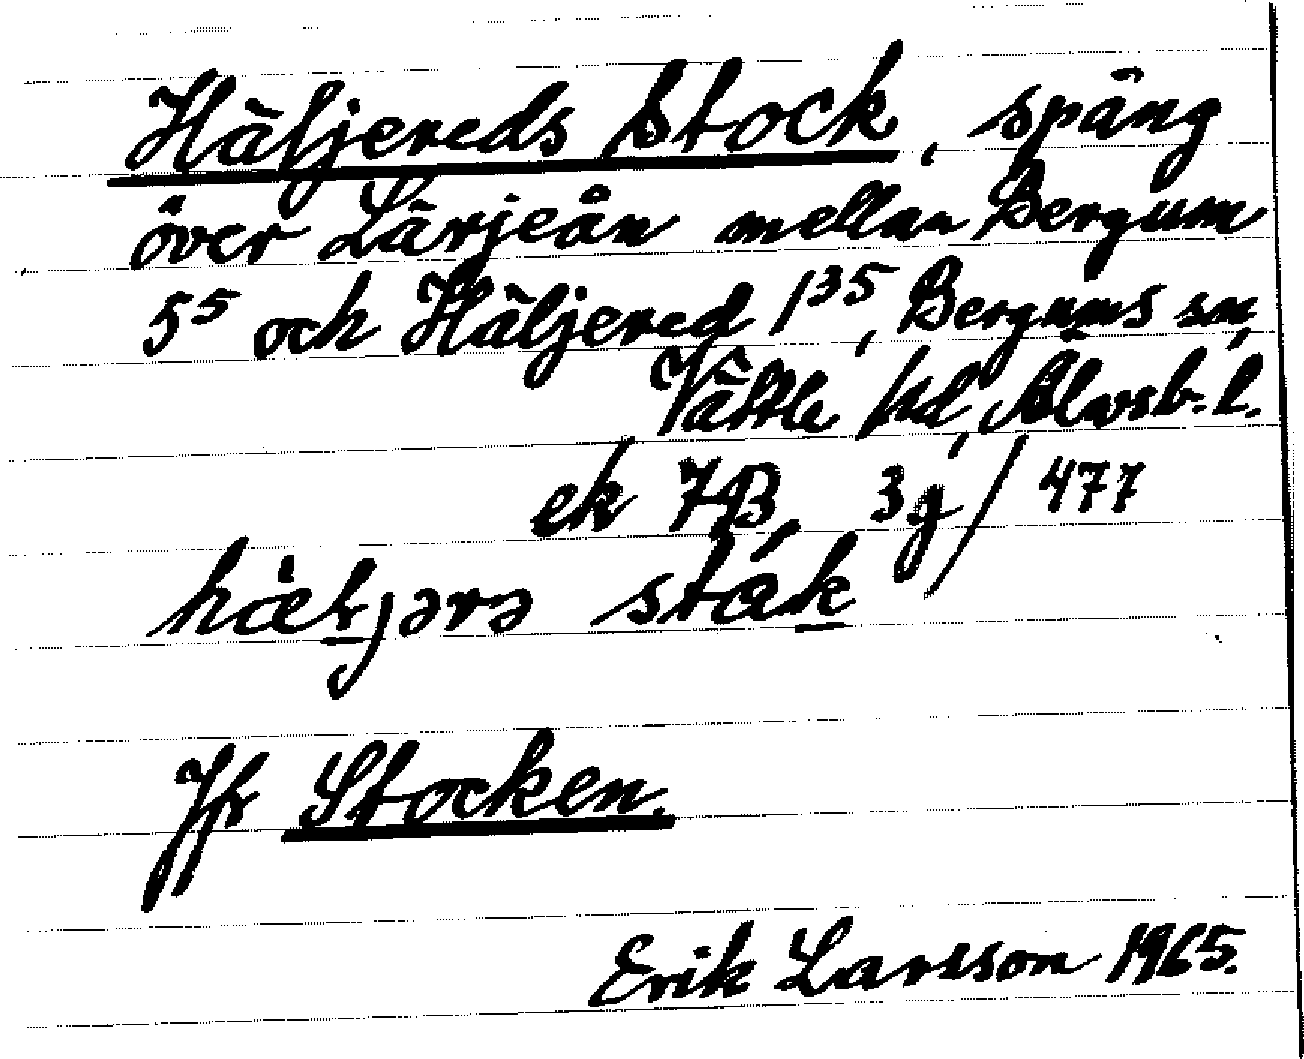 Häljereds Stock, spång
över Lärjeån mellan Bergum
5⁵ och Häljered 1³⁵, Bergums sn,
Vättle hd, Älvsb. l.
ek 7B, 3g/477
hæljərə ståk
Jfr Stocken.
Erik Larsson 1965.